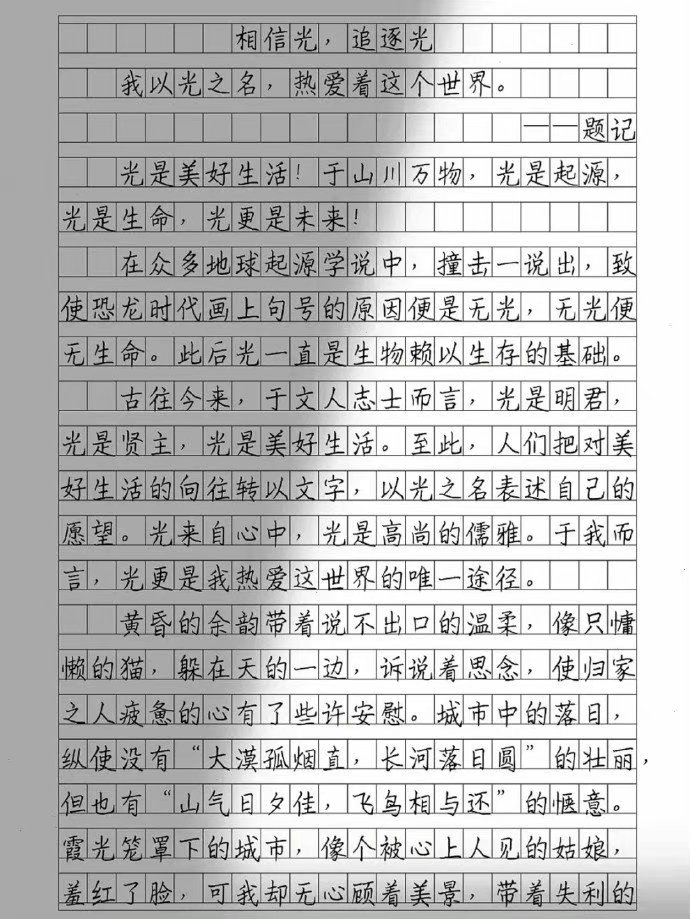 相信光，追逐光
我以光之名，热爱着这个世界。
——题记
光是美好生活！于山川万物，光是起源，
光是生命，光更是未来！
在众多地球起源学说中，撞击一说出，致
使恐龙时代画上句号的原因便是无光，无光便
无生命。此后光一直是生物赖以生存的基础。
古往今来，于文人志士而言，光是明君，
光是贤主，光是美好生活。至此，人们把对美
好生活的向往转以文字，以光之名表述自己的
愿望。光来自心中，光是高尚的儒雅。于我而
言，光更是我热爱这世界的唯一途径。
黄昏的余韵带着说不出口的温柔，像只慵
懒的猫，躲在天的一边，诉说着思念，使归家
之人疲惫的心有了些许安慰。城市中的落日，
纵使没有“大漠孤烟直，长河落日圆”的壮丽，
但也有“山气日夕佳，飞鸟相与还”的惬意。
霞光笼罩下的城市，像个被心上人见的姑娘，
羞红了脸，可我却无心顾着美景，带着失利的